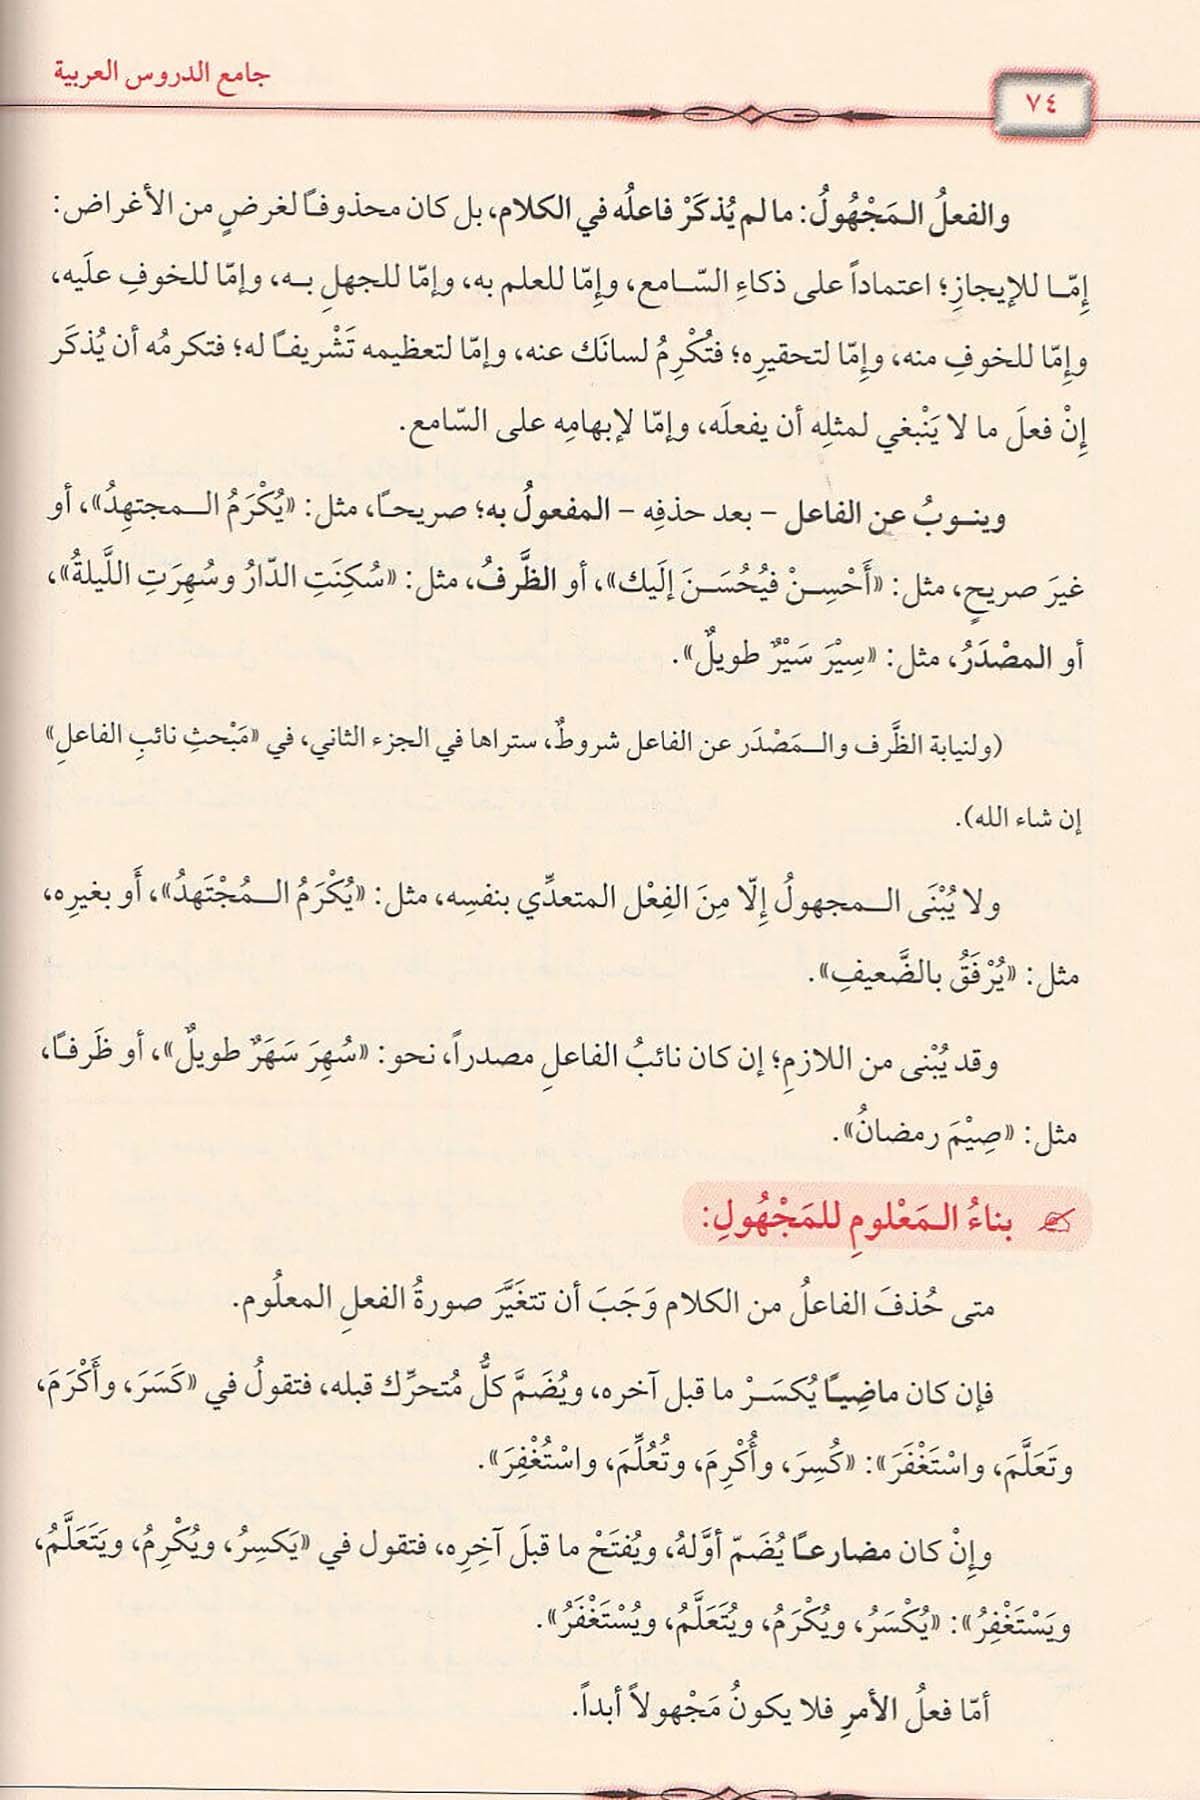 جامع الدروس العربية
٧٤
والفعلُ الـمَجْهُولُ: ما لم يُذكَرْ فاعلُه في الكلام، بل كان محذوفاً لغرضٍ من الأغراض:
إِمّا للإيجازِ؛ اعتماداً على ذكاءِ السّامع، وإمّا للعلم به، وإمّا للجهلِ به، وإمّا للخوفِ علَيه،
وإمّا للخوفِ منه، وإمّا لتحقيرِه؛ فتُكْرِمُ لسانَك عنه، وإمّا لتعظيمه تَشْريفاً له؛ فتكرمُه أن يُذكَر
إنْ فعلَ ما لا يَنْبغي لمثلِه أن يفعلَه، وإمّا لإبهامِه على السّامع.
وينوبُ عن الفاعل – بعد حذفِه – المفعولُ به؛ صريحاً، مثل: «يُكْرَمُ الـمجتهِدُ»، أو
غيرَ صريحٍ، مثل: «أَحْسِنْ فيُحْسَنَ إلَيك»، أو الظَّرفُ، مثل: «سُكِنَتِ الدّارُ وسُهِرَتِ اللَّيلةُ»،
أو المصْدَرُ، مثل: «سِيْرَ سَيْرٌ طويلٌ».
(ولنيابة الظَّرف والـمَصْدَر عن الفاعل شروطٌ، ستراها في الجزء الثاني، في «مَبْحثِ نائبِ الفاعلِ»
إن شاء الله).
ولا يُبْنَى الـمجهولُ إلّا مِنَ الفِعْل المتعدِّي بنفسِه، مثل: «يُكْرَمُ الـمُجْتَهدُ»، أَو بغيرِه،
مثل: «يُرْفَقُ بالضَّعيفِ».
وقد يُبْنى من اللازمِ؛ إن كان نائبُ الفاعلِ مصدراً، نحو: «سُهِرَ سَهَرٌ طويلٌ»، أو ظَرفاً،
مثل: «صِيْمَ رمضانُ».
بناءُ الـمَعْلومِ للمَجْهُولِ:
متى حُذفَ الفاعلُ من الكلام وَجَبَ أن تتغَيَّرَ صورةُ الفعلِ المعلُوم.
فإن كان ماضِياً يُكسَـرْ ما قبل آخره، ويُضَمَّ كلُّ مُتحرِّك قبله، فتقولُ في «كَسَرَ، وأَكْرَمَ،
وتَعَلَّمَ، واسْتَغْفَرَ»: «كُسِرَ، وأُكْرِمَ، وتُعُلِّمَ، واسْتُغْفِرَ».
وإنْ كان مضارعاً يُضَمّ أوَّلهُ، ويُفتَحْ ما قبلَ آخِرِه، فتقول في «يَكسِرُ، ويُكْرِمُ، ويَتَعَلَّمُ،
ويَسْتَغْفِرُ»: «يُكْسَرُ، ويُكْرَمُ، ويُتَعَلَّمُ، ويُسْتَغْفَرُ».
أمّا فعلُ الأمرِ فلا يكونُ مَجْهولاً أبداً.